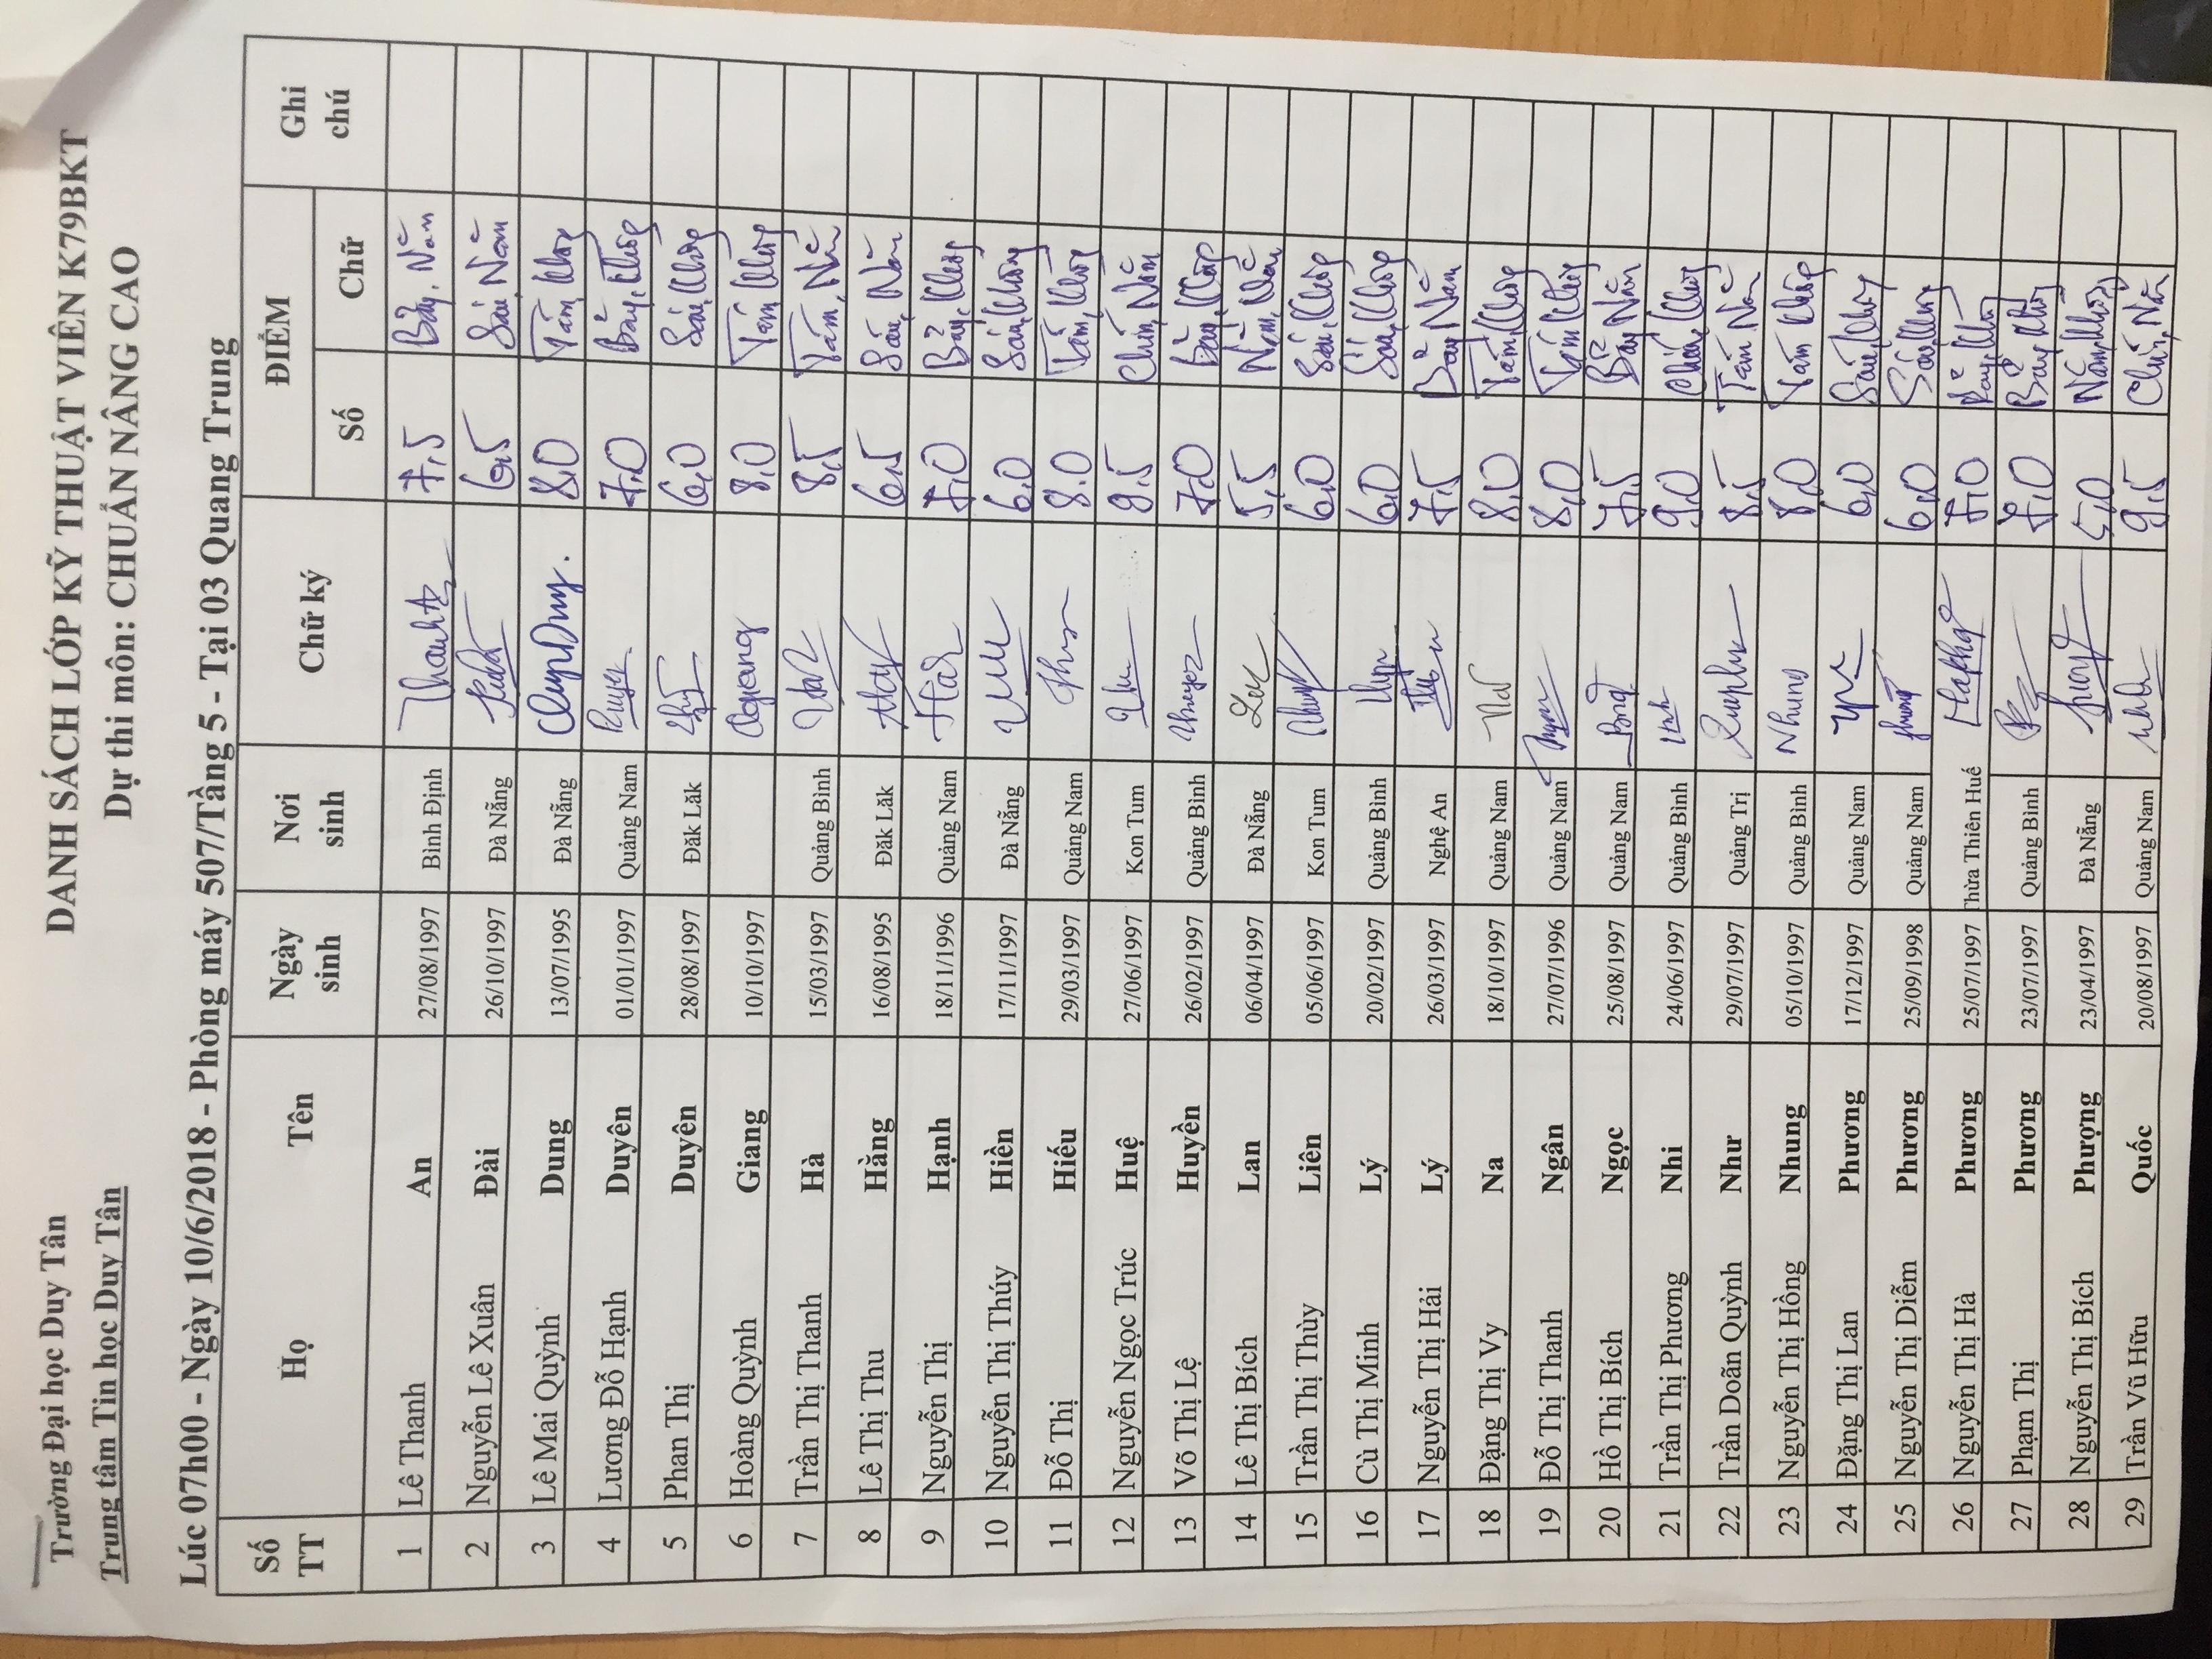 Trường Đại học Duy Tân
Trung tâm Tin học Duy Tân
DANH SÁCH LỚP KỸ THUẬT VIÊN K79BKT
Dự thi môn: CHUẨN NÂNG CAO
Lúc 07h00 - Ngày 10/6/2018 - Phòng máy 507/Tầng 5 - Tại 03 Quang Trung
Số TT Họ Tên Ngày sinh Nơi sinh Chữ ký ĐIỂM Ghi chú
Số Chữ
1 Lê Thanh An 27/08/1997 Bình Định 7,5 Bảy, Năm
2 Nguyễn Lê Xuân Đài 26/10/1997 Đà Nẵng 6,5 Sáu, Năm
3 Lê Mai Quỳnh Dung 13/07/1995 Đà Nẵng 8,0 Tám, Không
4 Lương Đỗ Hạnh Duyên 01/01/1997 Quảng Nam 7,0 Bảy, Không
5 Phan Thị Duyên 28/08/1997 Đăk Lăk 6,0 Sáu, Không
6 Hoàng Quỳnh Giang 10/10/1997 Qgiang 8,0 Tám, Không
7 Trần Thị Thanh Hà 15/03/1997 Quảng Bình 8,5 Tám, Năm
8 Lê Thị Thu Hằng 16/08/1995 Đăk Lăk 6,5 Sáu, Năm
9 Nguyễn Thị Hạnh 18/11/1996 Quảng Nam 7,0 Bảy, Không
10 Nguyễn Thị Thúy Hiền 17/11/1997 Đà Nẵng 6,0 Sáu, Không
11 Đỗ Thị Hiếu 29/03/1997 Quảng Nam 8,0 Tám, Không
12 Nguyễn Ngọc Trúc Huệ 27/06/1997 Kon Tum 9,5 Chín, Năm
13 Võ Thị Lệ Huyền 26/02/1997 Quảng Bình 7,0 Bảy, Không
14 Lê Thị Bích Lan 06/04/1997 Đà Nẵng 5,5 Năm, Năm
15 Trần Thị Thùy Liên 05/06/1997 Kon Tum 6,0 Sáu, Không
16 Cù Thị Minh Lý 20/02/1997 Quảng Bình 6,0 Sáu, Không
17 Nguyễn Thị Hải Lý 26/03/1997 Nghệ An 7,5 Bảy, Năm
18 Đặng Thị Vy Na 18/10/1997 Quảng Nam 8,0 Tám, Không
19 Đỗ Thị Thanh Ngân 27/07/1996 Quảng Nam 8,0 Tám, Không
20 Hồ Thị Bích Ngọc 25/08/1997 Quảng Nam 7,5 Bảy, Năm
21 Trần Thị Phương Nhi 24/06/1997 Quảng Bình 9,0 Chín, Không
22 Trần Doãn Quỳnh Như 29/07/1997 Quảng Trị 8,5 Tám, Năm
23 Nguyễn Thị Hồng Nhung 05/10/1997 Quảng Bình Nhung 8,0 Tám, Không
24 Đặng Thị Lan Phương 17/12/1997 Quảng Nam 6,0 Sáu, Không
25 Nguyễn Thị Diễm Phương 25/09/1998 Quảng Nam 6,0 Sáu, Không
26 Nguyễn Thị Hà Phương 25/07/1997 Thừa Thiên Huế 7,0 Bảy, Không
27 Phạm Thị Phương 23/07/1997 Quảng Bình 7,0 Bảy, Không
28 Nguyễn Thị Bích Phượng 23/04/1997 Đà Nẵng 5,0 Năm, Không
29 Trần Vũ Hữu Quốc 20/08/1997 Quảng Nam 9,5 Chín, Năm